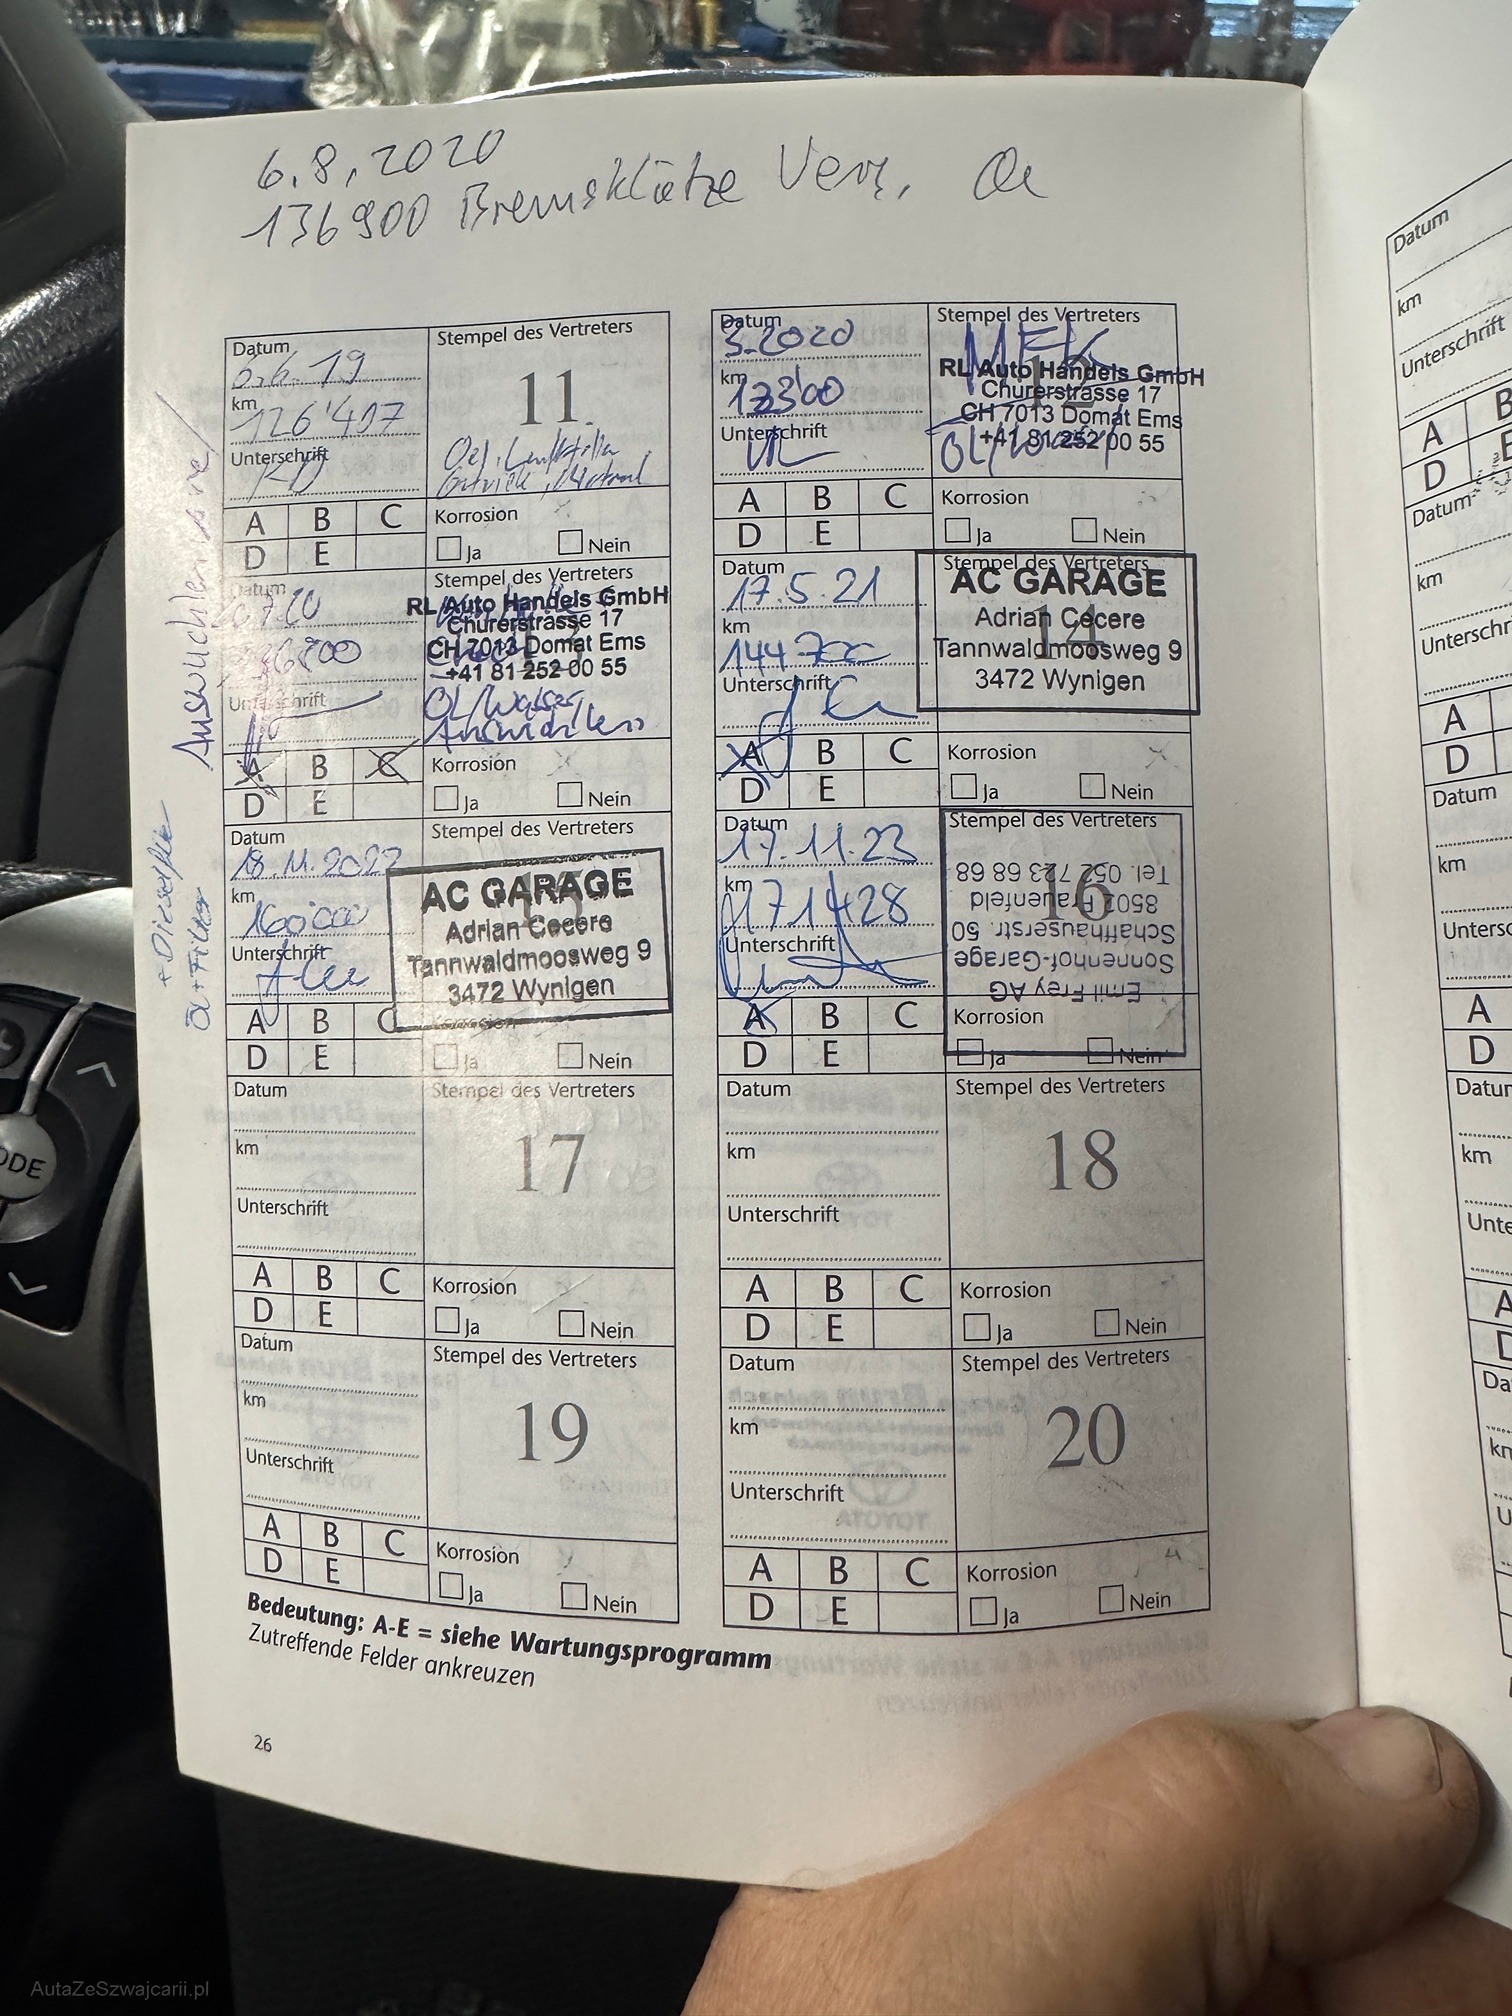 6.8.2020
136900 Bremsklötze
Datum
6.6.19
km
126'407
Unterschrift
Stempel des Vertreters
11
Oel,
A B C
D E
Korrosion
Ja Nein
Datum
3.2020
km
Unterschrift
Stempel des Vertreters
12
RL Auto Handels GmbH
Churerstrasse 17
CH 7013 Domat Ems
+41 81 252 00 55
A B C
D E
Korrosion
Ja Nein
Datum
km
Unterschrift
Stempel des Vertreters
RL Auto Handels GmbH
Churerstrasse 17
CH 7013 Domat Ems
+41 81 252 00 55
Öl/Wasser,
A B C
D E
Korrosion
Ja Nein
Datum
17.5.21
km
144700
Unterschrift
Stempel des Vertreters
14
AC GARAGE
Adrian Cecere
Tannwaldmoosweg 9
3472 Wynigen
A B C
D E
Korrosion
Ja Nein
Öl+Filter
Datum
18.11.2022
km
160'000
Unterschrift
Stempel des Vertreters
15
AC GARAGE
Adrian Cecere
Tannwaldmoosweg 9
3472 Wynigen
A B C
D E
Korrosion
Ja Nein
Datum
17.11.23
km
171428
Unterschrift
Stempel des Vertreters
16
Emil Frey AG
Sonnenhof-Garage
Schaffhauserstr. 50
8502 Frauenfeld
Tel. 052 723 68 68
A B C
D E
Korrosion
Ja Nein
Datum
km
Unterschrift
Stempel des Vertreters
17
A B C
D E
Korrosion
Ja Nein
Datum
km
Unterschrift
Stempel des Vertreters
18
A B C
D E
Korrosion
Ja Nein
Datum
km
Unterschrift
Stempel des Vertreters
19
A B C
D E
Korrosion
Ja Nein
Datum
km
Unterschrift
Stempel des Vertreters
20
A B C
D E
Korrosion
Ja Nein
Bedeutung: A-E = siehe Wartungsprogramm
Zutreffende Felder ankreuzen
26
Datum
km
Unterschrift
A
D
Datum
km
Unterschr
A
D
Datum
km
Unters
A
D
Datum
km
Unte
AutaZeSzwajcarii.pl